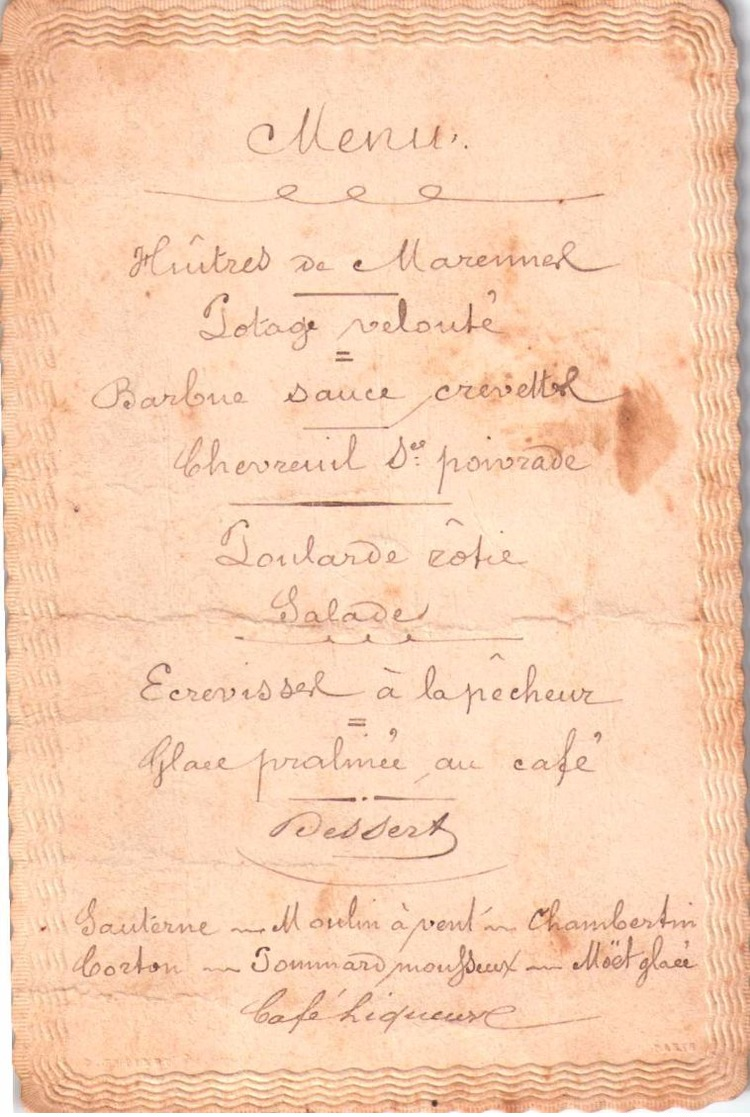 Menu.
Huîtres de Marennes
Potage velouté
Barbue sauce crevettes
Chevreuil Sce: poivrade
Poularde rôtie
Salade
Ecrevisses à la pêcheur
Glace pralinée au café
Dessert
Sauterne ~ Moulin à vent ~ Chambertin
Corton ~ Pommard mousseux ~ Moët glacé
Café Liqueurs